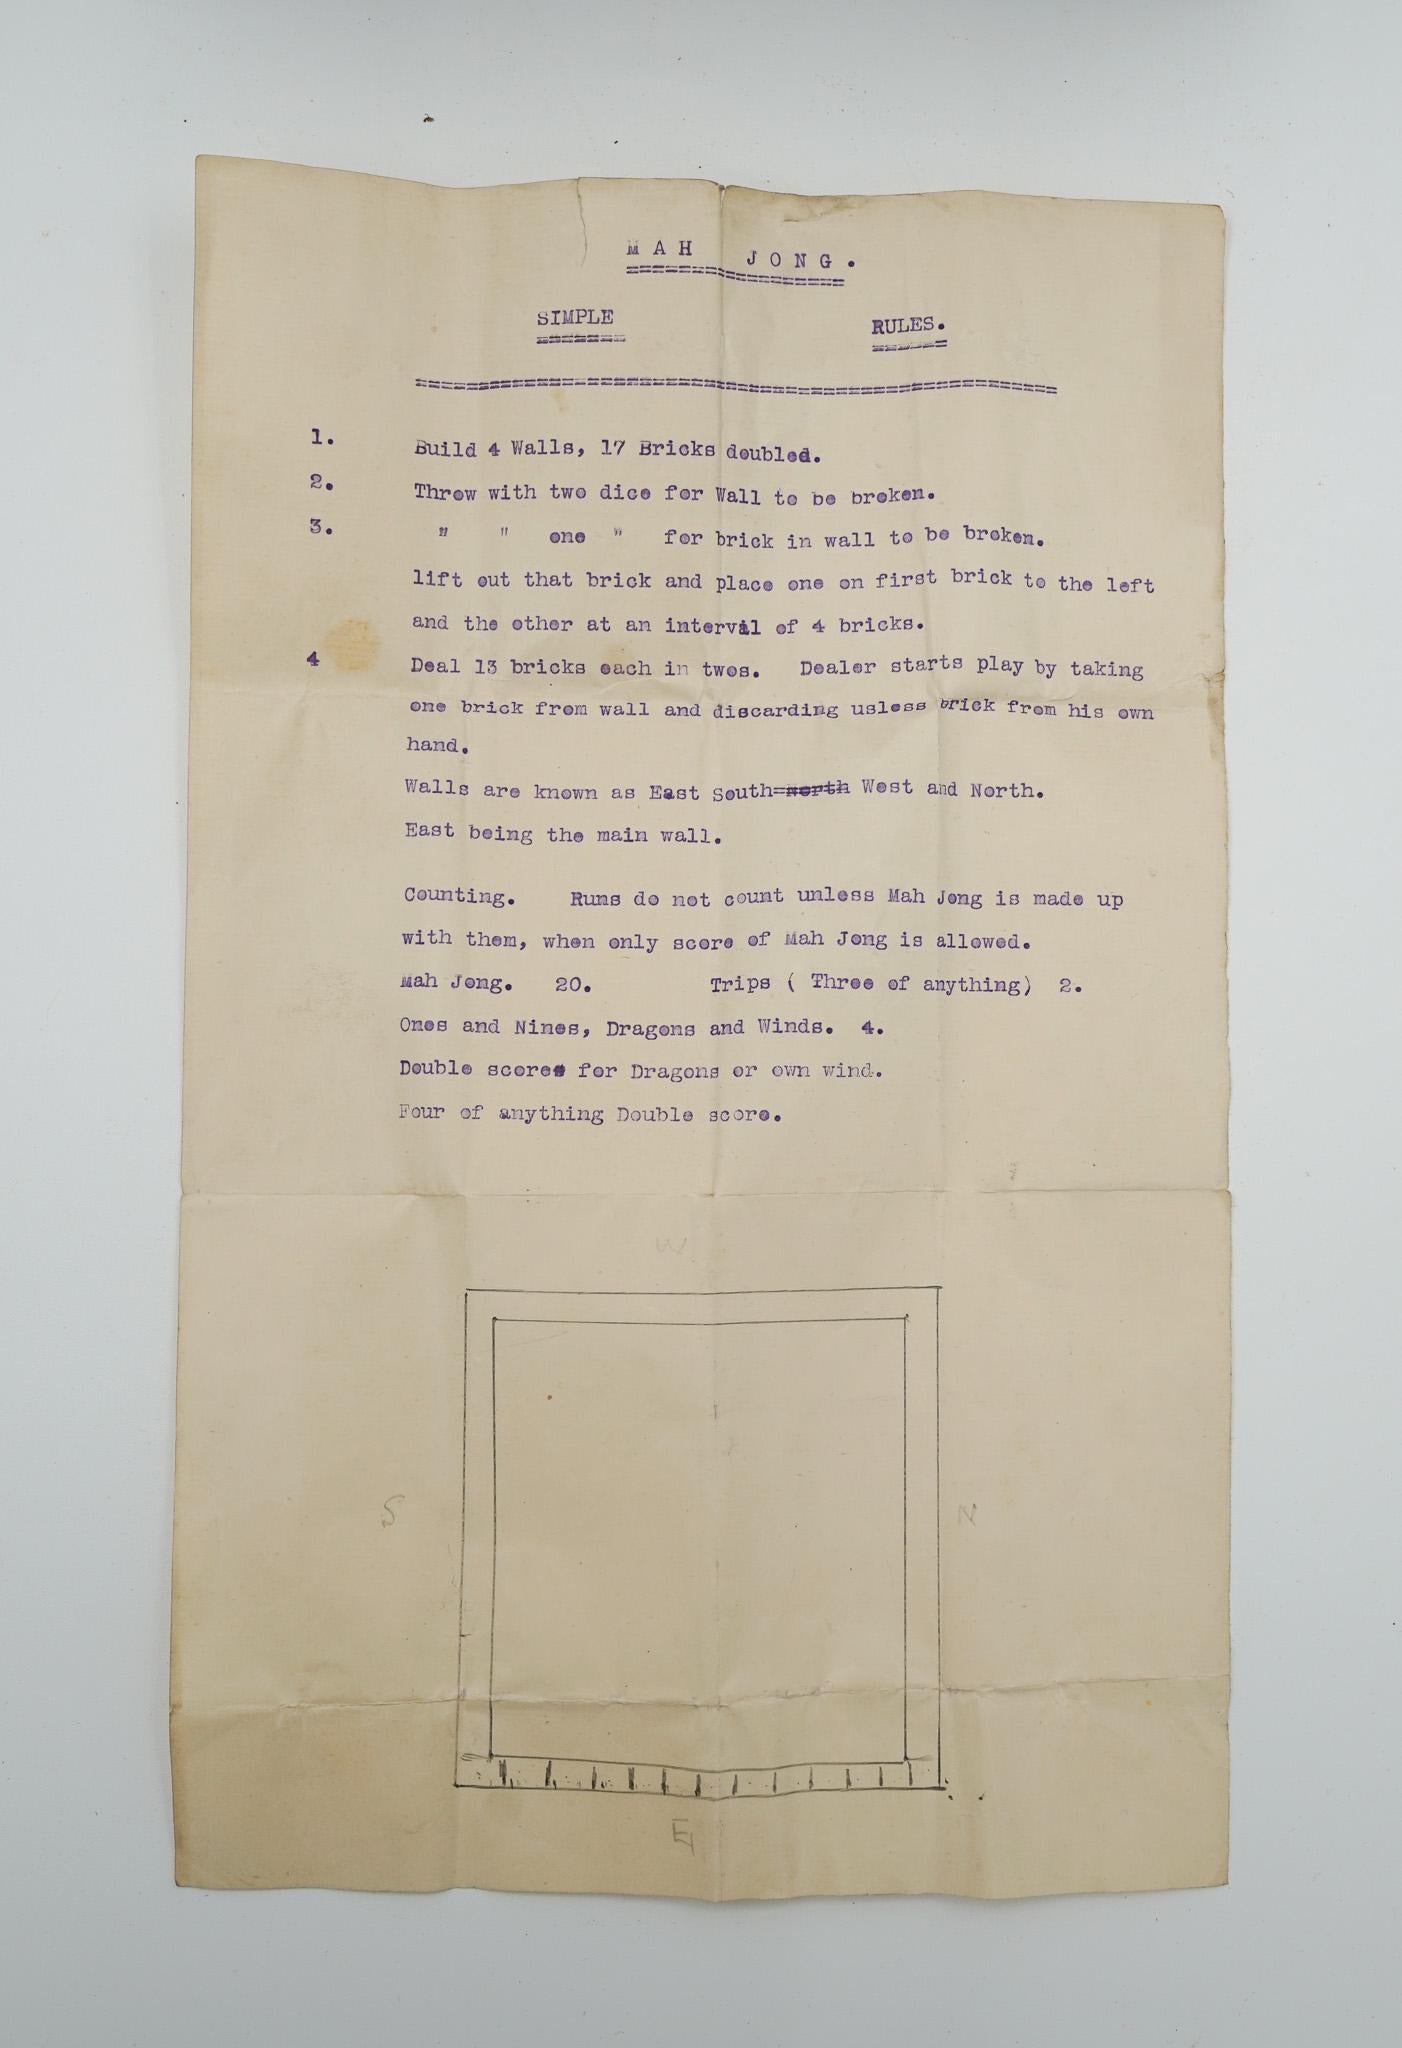 MAH JONG.
SIMPLE RULES.
1. Build 4 Walls, 17 Bricks doubled.
2. Throw with two dice for Wall to be broken.
3. " " one " for brick in wall to be broken.
lift out that brick and place one on first brick to the left
and the other at an interval of 4 bricks.
4 Deal 13 bricks each in twos. Dealer starts play by taking
one brick from wall and discarding usless brick from his own
hand.
Walls are known as East South=north West and North.
East being the main wall.
Counting. Runs do not count unless Mah Jong is made up
with them, when only score of Mah Jong is allowed.
Mah Jong. 20. Trips ( Three of anything) 2.
Ones and Nines, Dragons and Winds. 4.
Double scores for Dragons or own wind.
Four of anything Double score.
W
S N
E